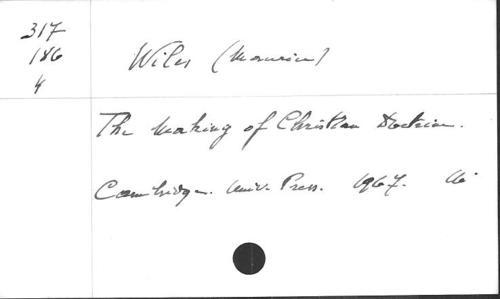 317
186
4
Wiles (Maurice)
The Making of Christian Doctrine.
Cambridge. Univ. Press. 1967.